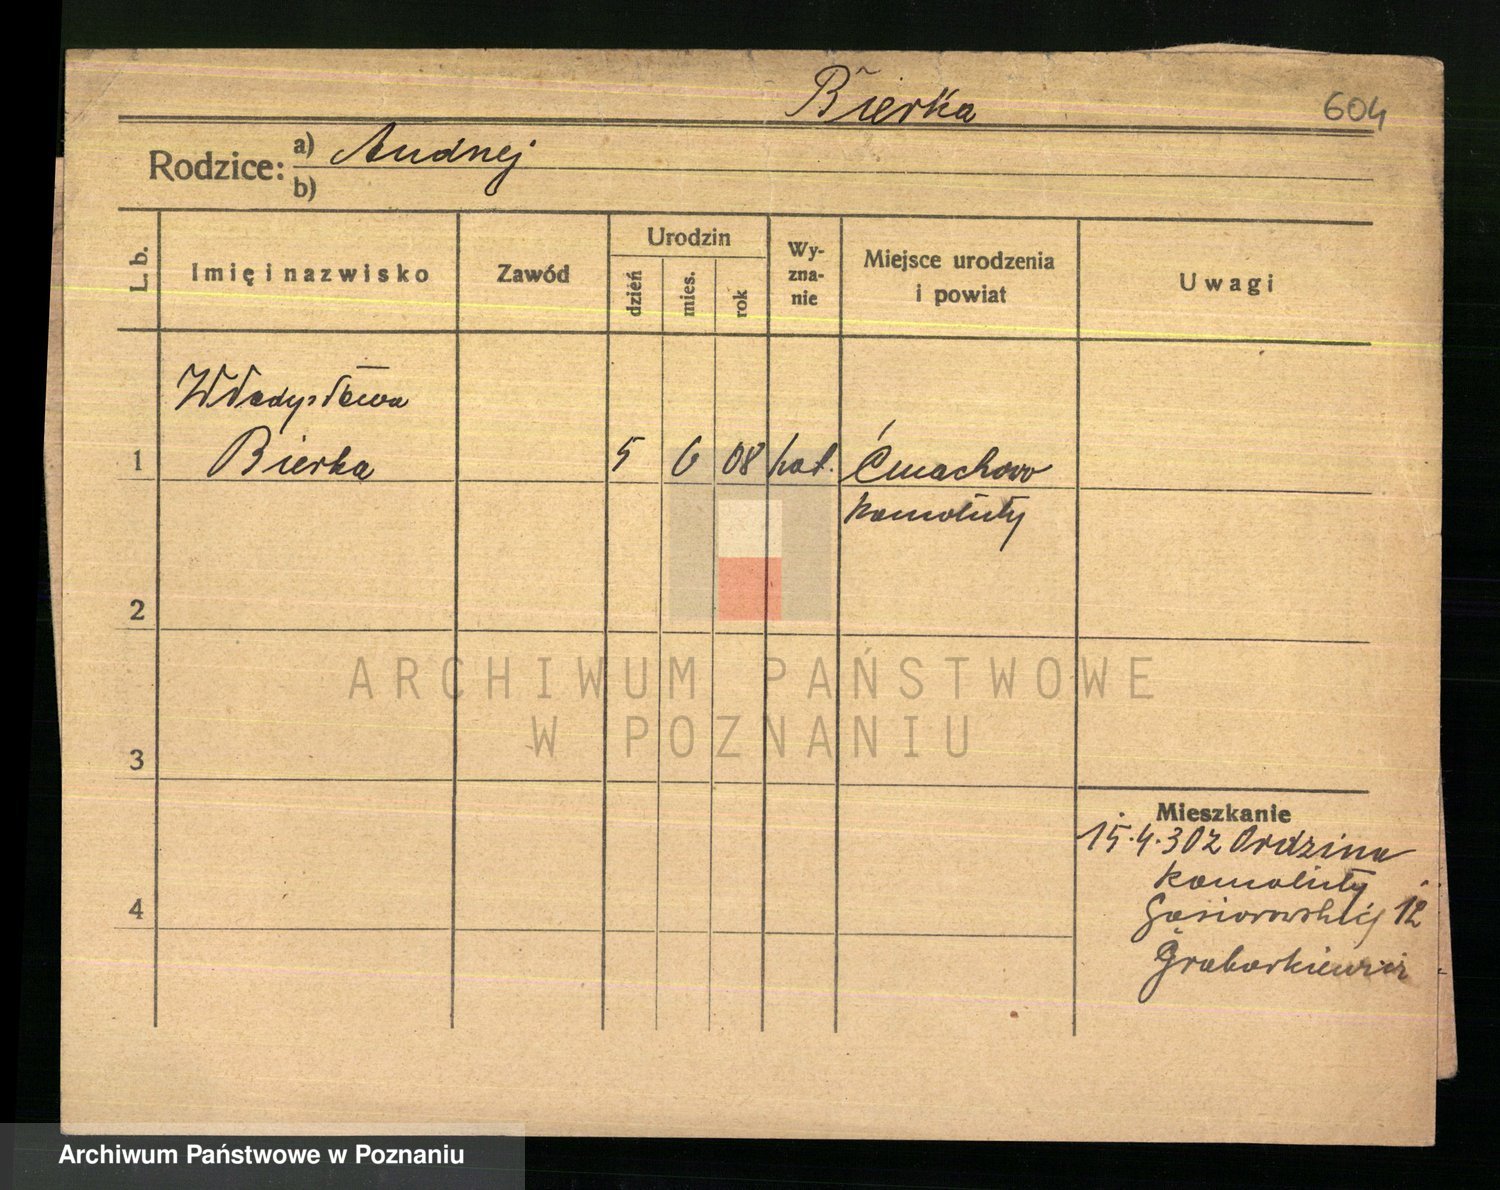 Bierka
604
Rodzice:
a) Andrzej
b)
L. b.
Imię i nazwisko
Zawód
Urodzin
dzień
mies.
rok
Wy-
zna-
nie
Miejsce urodzenia
i powiat
Uwagi
Władysława
1 Bierka 5 6 08 kat. Ćmachowo
Szamotuły
2
ARCHIWUM PAŃSTWOWE
W POZNANIU
3
Mieszkanie
15.4.30 z
4
12
Grabarkiewicz
Archiwum Państwowe w Poznaniu